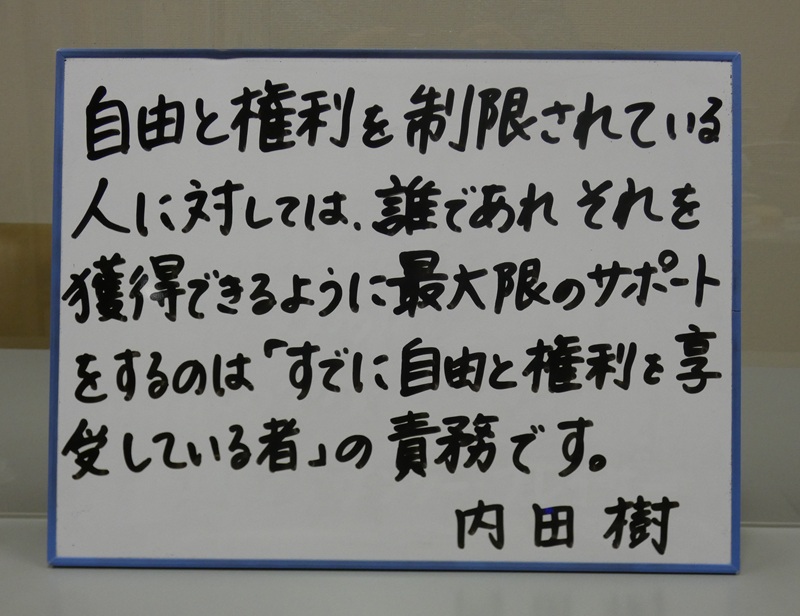 自由と権利を制限されている
人に対しては、誰であれ それを
獲得できるように最大限のサポート
をするのは「すでに自由と権利を享
受している者」の責務です。
内田 樹